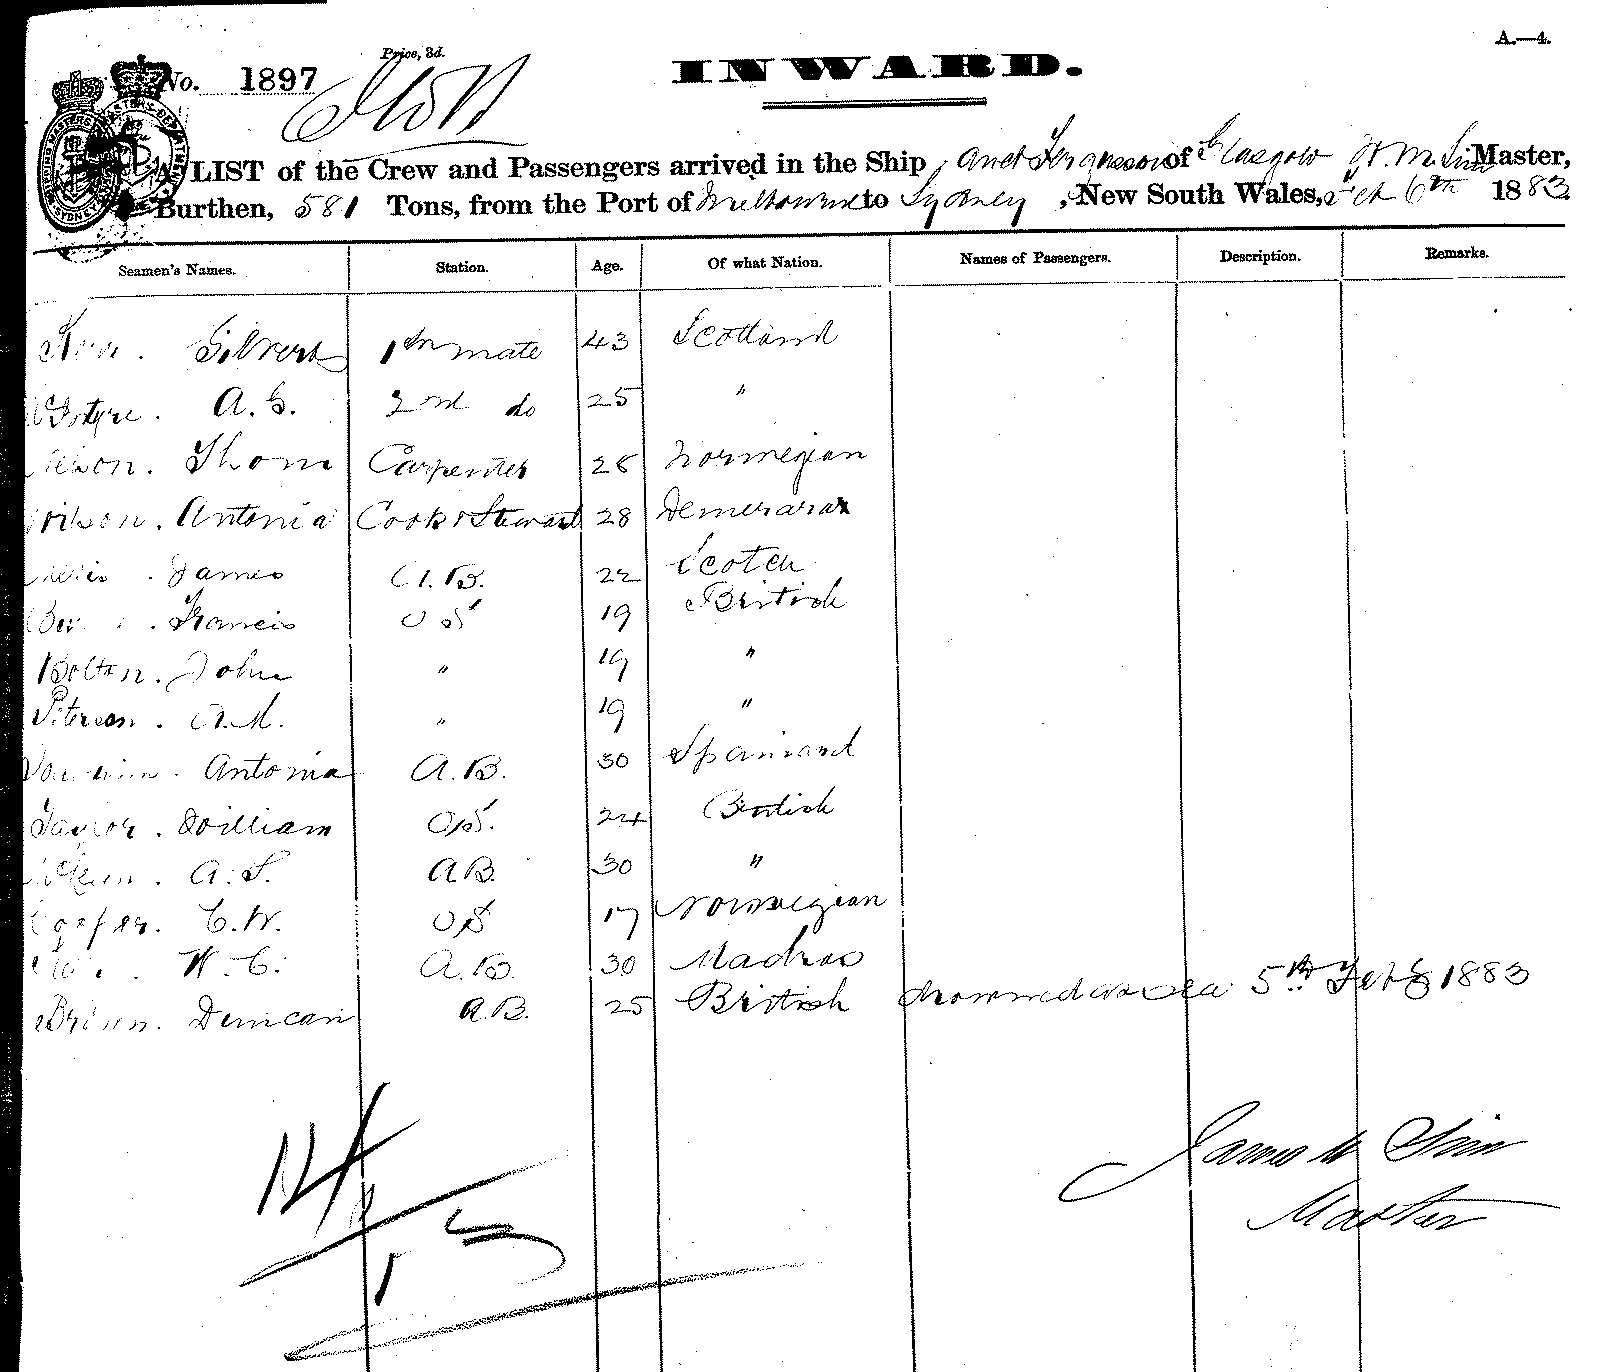 A.—4.
Price, 3d.
No. 1897
INWARD.
A LIST of the Crew and Passengers arrived in the Ship Janet Fergusson of Glasgow Master,
Burthen, 581 Tons, from the Port of Melbourne to Sydney, New South Wales, Feb 6th 1883
Seamen's Names. Station. Age. Of what Nation. Names of Passengers. Description. Remarks.
Gilvert 1st mate 43 Scotland
A. G. 2nd do 25 "
Thom Carpenter 28 Norwegian
Wilson. Antonia Cook & Steward 28 Demerara
James A.B. 22 Scotch
Francis O S 19 British
Bolton. John " 19 "
Peterson. A.M. " 19 "
Antonia A.B. 30 Spaniard
Taylor. William O.S. 24 British
A.S. A.B. 30 "
Cooper. C.W. O S 17 Norwegian
W. C. A.B. 30 Madras
Brown. Duncan A.B. 25 British drowned at Sea 5th Feby 1883
James W Sim
Master
14